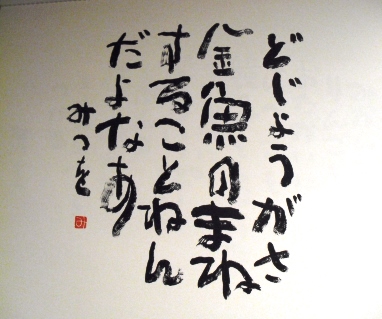 どじょうがさ
金魚のまね
することねん
だよなあ
みつを